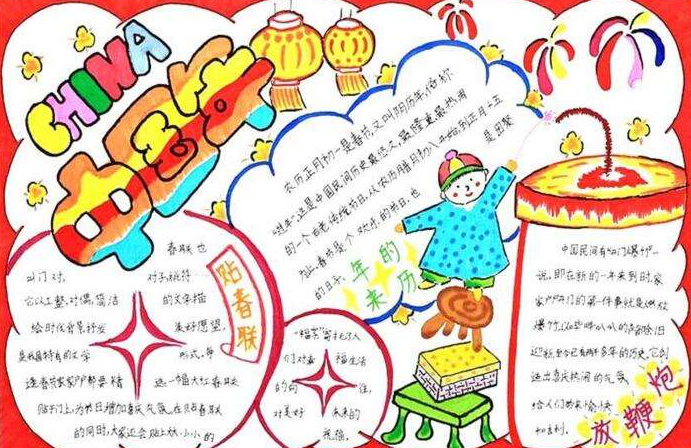 CHINA
中国年
农历正月初一是春节,又叫阴历年,俗称
是中国民间历史最悠久,最隆重,最热闹
的一个古老传统节日。从农历腊月初八开始,到正月十五
是团聚
春节是个欢乐的节日,也
的日子。
年的
来历
春联也
叫门对,
对子,桃符
它以工整,对偶,简洁
的文字描
绘时代背景抒发
美好愿望,
是我国特有的文学
形式,每
逢春节家家户户都要精
选一幅大红春联
贴于门上,为节日增加喜庆气氛。在贴春联
的同时,大家还会贴上大小小的
贴春联
“福字”寄托了人
们对幸
福生活
的向
往,
对美好
未来的
祝福。
中国民间有“开门爆竹”一
说,即在新的一年来到时,家
家户户开门的第一件事就是燃放
爆竹,以
的声除旧
迎新,至今已有两千多年的历史,它创
造出喜庆热闹的气氛,
给人们带来愉快
和吉利。
放鞭炮